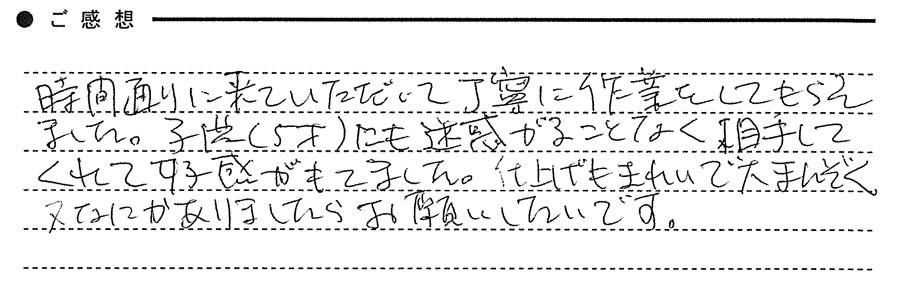 ● ご感想
時間通りに来ていただいて丁寧に作業をしてもらえ
ました。子供(5才)にも迷惑がることなく相手して
くれて好感がもてました。仕上げもきれいで大まんぞく
又なにかありましたらお願いしたいです。